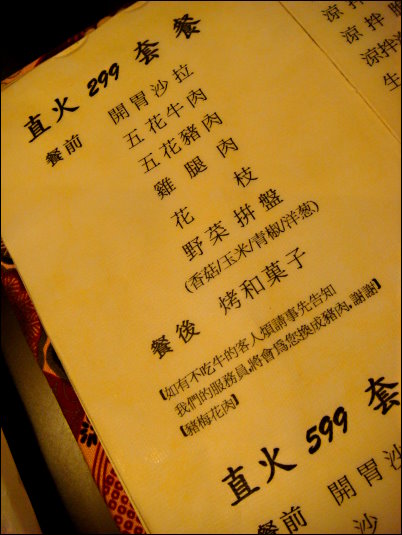 直火 299 套餐
餐前 開胃沙拉
五花牛肉
五花豬肉
雞腿肉
花枝
野菜拼盤
(香菇/玉米/青椒/洋葱)
餐後 烤和菓子
【如有不吃牛的客人煩請事先告知
我們的服務員,將會為您換成豬肉,謝謝】
【豬梅花肉】
直火 599 套
餐前 開胃沙
沙
涼拌
涼拌
涼拌
生